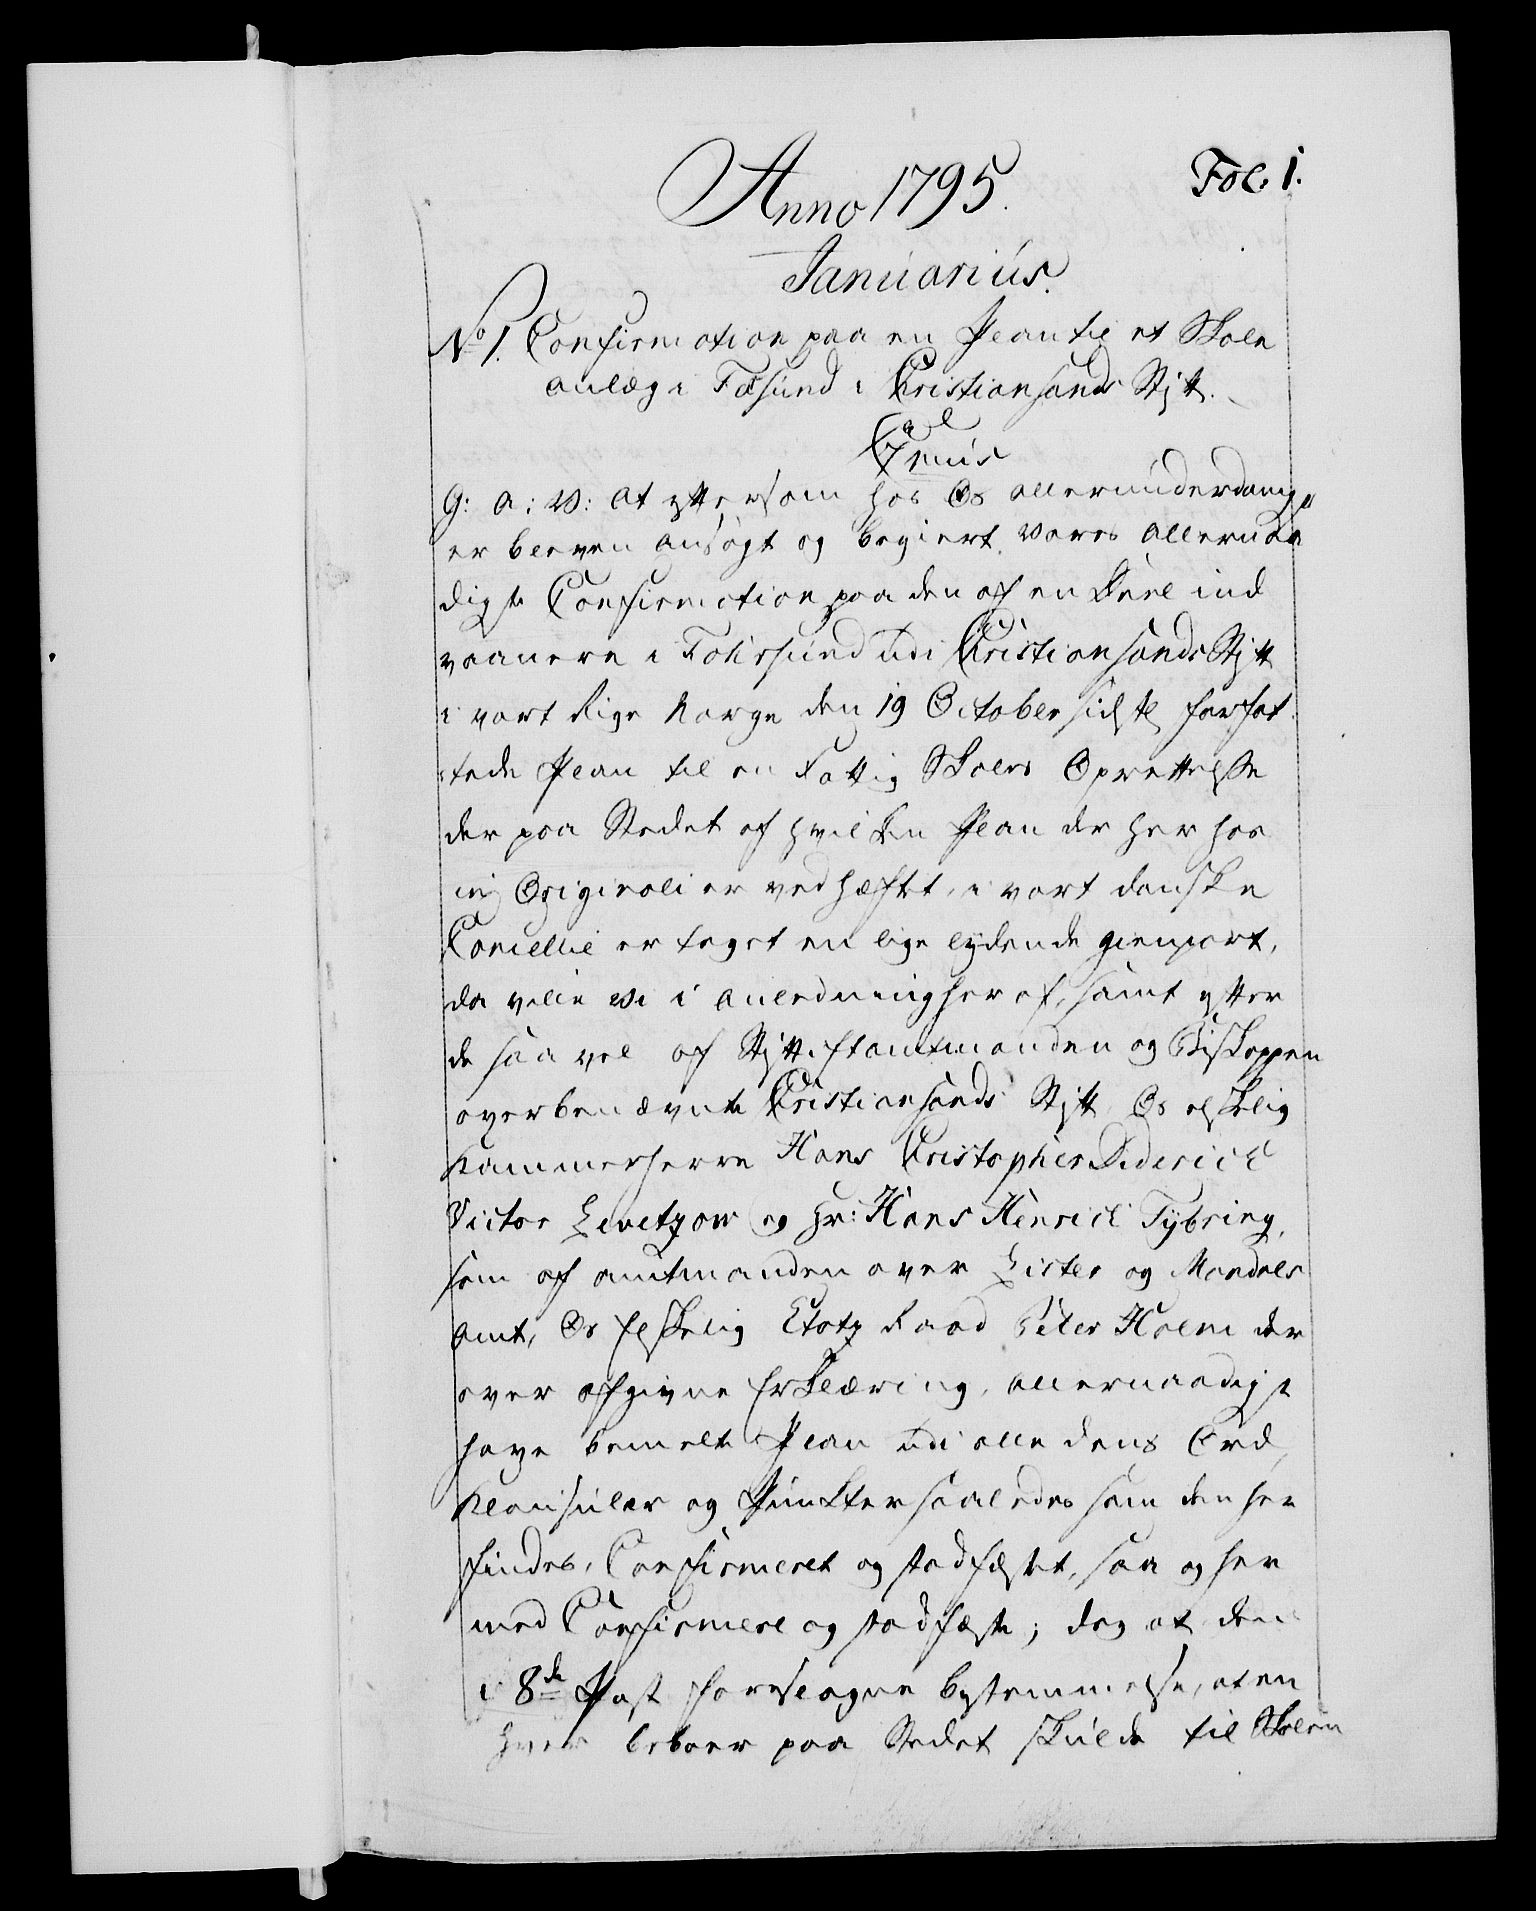 Anno 1795.
Fol. 1.
Januarius.
No 1. Confirmation paa en Plan til et Skole
anlæg i Farsund i Christiansands Stift.
G: A: V: at eftersom hos Os allerunderdanigst
er bleven ansøgt og begiert Vores allernaa
digste Confirmation paa den af en Deel ind
vaanere i Fahrsund udi Christiansands Stift
i vort Rige Norge den 19 October sidstl forfat
tede Plan til en Fattig Skoles Oprettelse
der paa Stedet af hvilken Plan der her hos
in Originali er vedhæftet, i vort danske
Cancellie er taget en lige lydende gienpart,
da ville Vi i anledning her af, samt efter
de saa vel af Stiftamtmanden og Biskoppen
over benævnte Christiansands Stift Os elskelig
Kammerherre Hans Christopher Diderich
Victor Levetzow og Hr: Hans Henrich Tybring,
som af amtmanden over Lister og Mandals
amt, Os elskelig Etatz Raad Peter Holm der
over afgivne Erklæring, allernaadigst
have bemelte Plan udi alle dens Ord,
Klausuler og Punkter saaledes som den her
findes, Confirmeret og stadfæstet, saa og her
med Confirmere og stadfæste; dog at den
i 8de Post foreslagne bestemmelse, at en
hver beboer paa Stedet skulde til Skolen